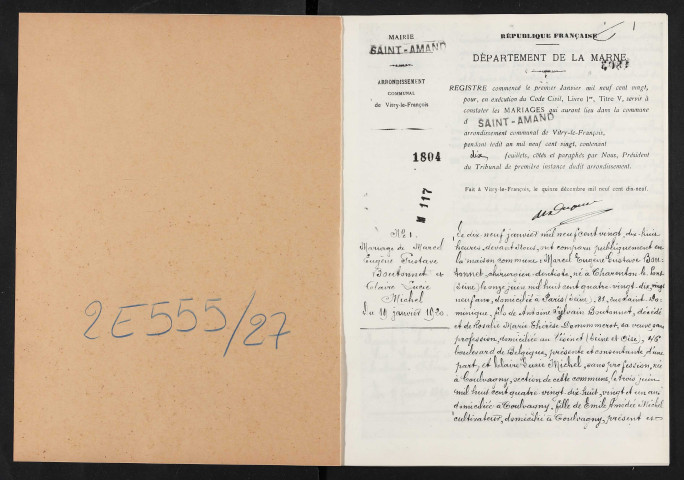 2E555/27
MAIRIE
SAINT-AMAND
ARRONDISSEMENT
COMMUNAL
de Vitry-le-François.
1804
M 117
RÉPUBLIQUE FRANÇAISE
1
DÉPARTEMENT DE LA MARNE
REGISTRE commencé le premier Janvier mil neuf cent vingt,
pour, en exécution du Code Civil, Livre Ier, Titre V, servir à
constater les MARIAGES qui auront lieu dans la commune
d SAINT-AMAND
arrondissement communal de Vitry-le-François,
pendant ledit an mil neuf cent vingt, contenant
dix feuillets, côtés et paraphés par Nous, Président
du Tribunal de première instance dudit arrondissement.
Fait à Vitry-le-François, le quinze décembre mil neuf cent dix-neuf.
No 1.
Mariage de Marcel
Eugène Gustave
Boutonnet et
Claire Lucie
Michel
Du 19 janvier 1920.
Le dix neuf janvier mil neuf cent vingt, dix-huit
heures, devant Nous, ont comparu publiquement en
la maison commune : Marcel Eugène Gustave Bou-
tonnet, chirurgien-dentiste, né à Charenton le Pont
Seine le onze juin mil huit cent quatre-vingt-dix, vingt
neuf ans, domicilié à Paris (Seine), 81, rue Saint-Do-
minique, fils de Antoine Sylvain Boutonnet, décédé
et de Rosalie Marie Thérèse sa veuve sans
profession, domiciliée au Vésinet (Seine et Oise),
boulevard de Belgique, présente et consentante d'une
part, et Claire Lucie Michel, sans profession, née
à Coulvagny, section de cette commune, le trois juin
mil huit cent quatre-vingt-dix-huit, vingt et un ans
domiciliée à Coulvagny, fille de Emile Amédée Michel
cultivateur, domicilié à Coulvagny, présent et